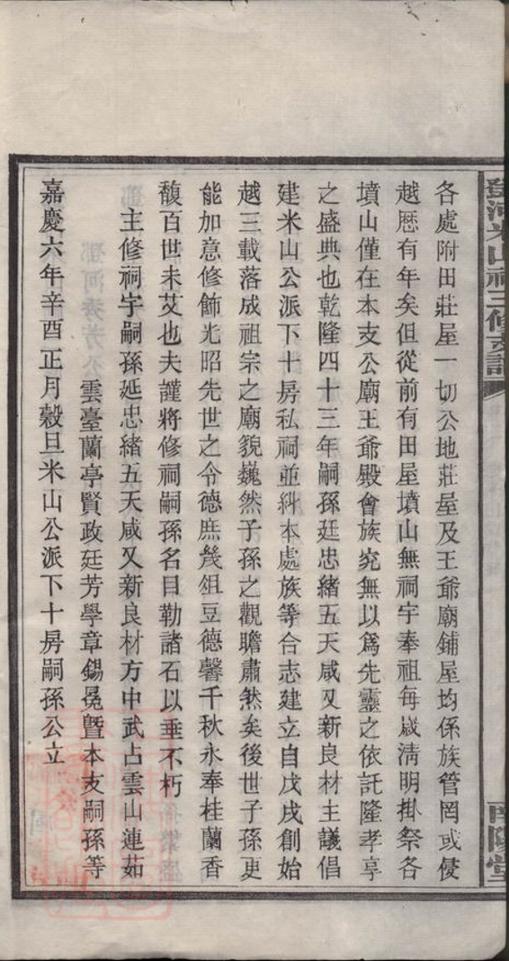 鄧河米山祠三修支譜
南陽堂
各處附田莊屋一切公地莊屋及王爺廟鋪屋均係族管罔或侵
越歷有年矣但從前有田屋墳山無祠宇奉祖每歲清明掛祭各
墳山僅在本支公廟王爺殿會族究無以爲先靈之依託隆孝享
之盛典也乾隆四十三年嗣孫廷忠緒五天咸又新良材主議倡
建米山公派下十房私祠並糾本處族等合志建立自戊戌創始
越三載落成祖宗之廟貌巍然子孫之觀瞻肅然矣後世子孫更
能加意修飾光昭先世之令德庶幾俎豆德馨千秋永奉桂蘭香
馥百世未艾也夫謹將修祠嗣孫名目勒諸石以垂不朽
主修祠宇嗣孫延忠緒五天咸又新良材方中武占雲山連茹
雲臺蘭亭賢政廷芳學章錫冕暨本支嗣孫等
嘉慶六年辛酉正月穀旦米山公派下十房嗣孫公立